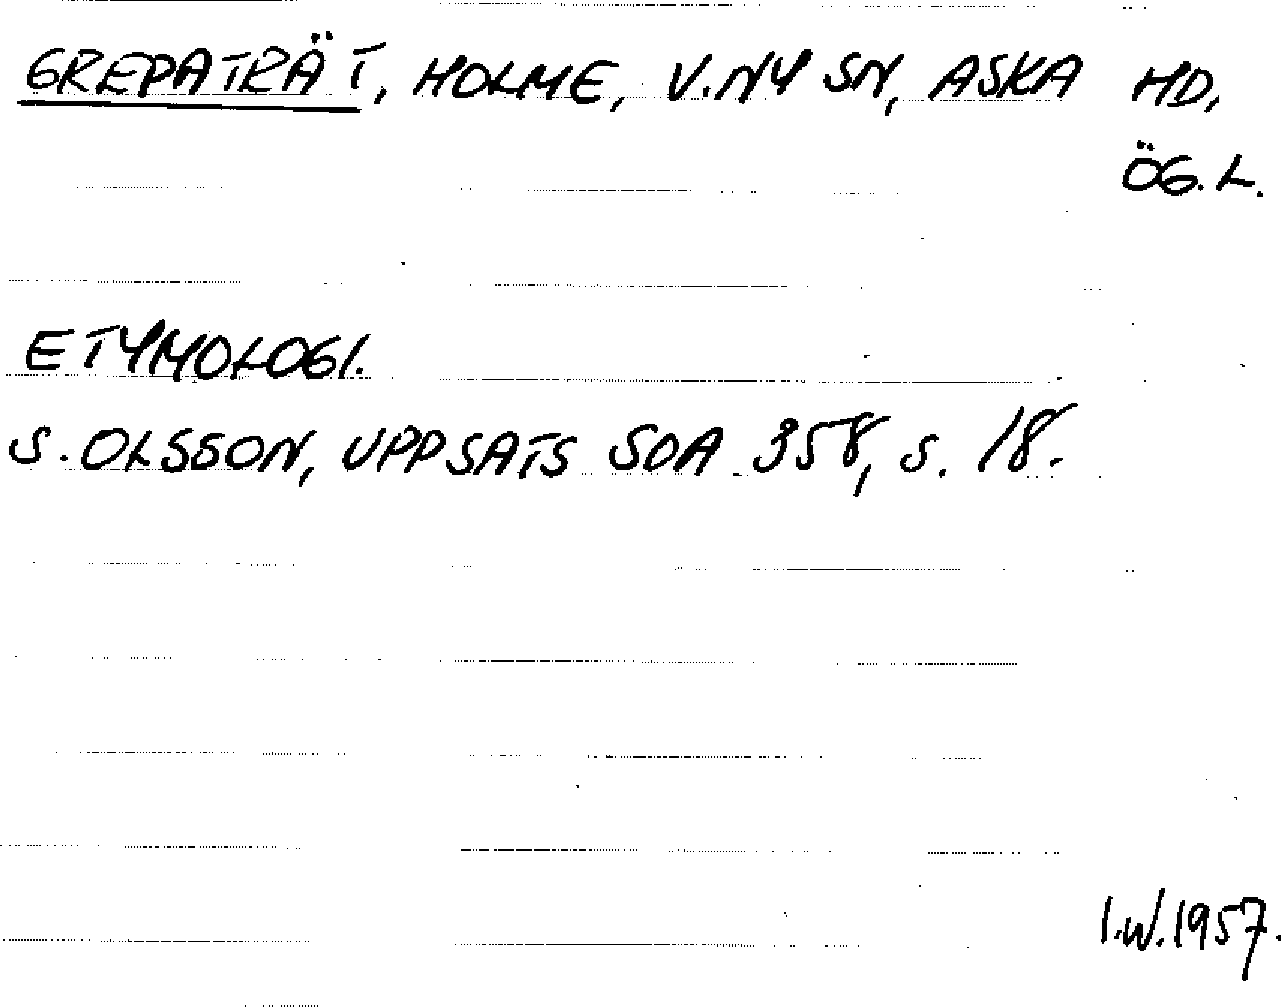 GREPATRÄT, HOLME, V. NY SN, ASKA HD,
ÖG. L.
ETYMOLOGI.
S. OLSSON, UPPSATS SOA 358, S. 18.
I.W. 1957.